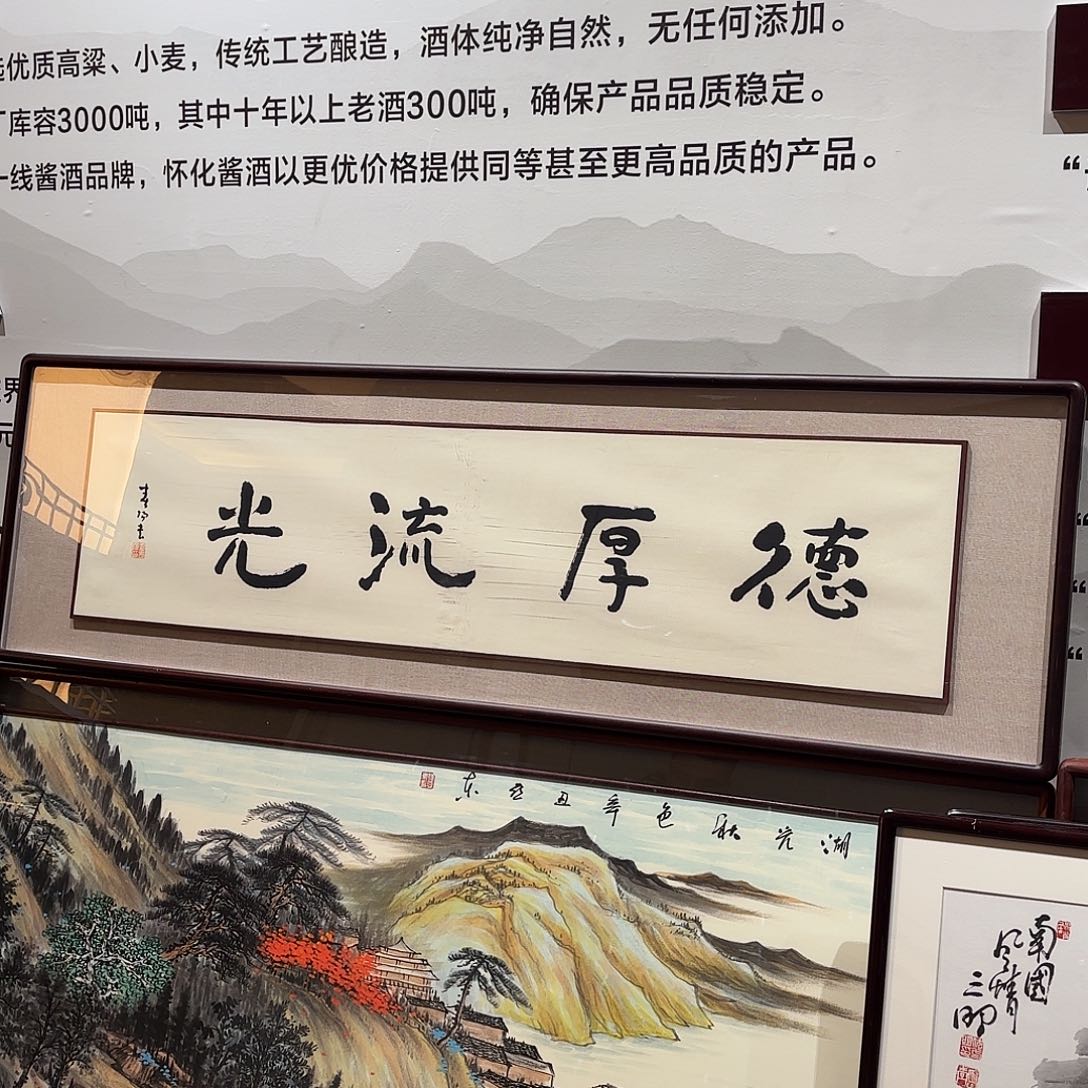 优质高粱、小麦，传统工艺酿造，酒体纯净自然，无任何添加。
库容3000吨，其中十年以上老酒300吨，确保产品品质稳定。
一线酱酒品牌，怀化酱酒以更优价格提供同等甚至更高品质的产品。
界
元
德厚流光
湖光秋色
辛丑
南國
风情